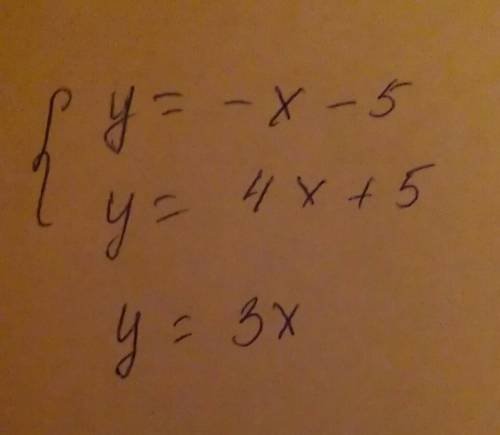 y = -x - 5
y = 4x + 5
y = 3x